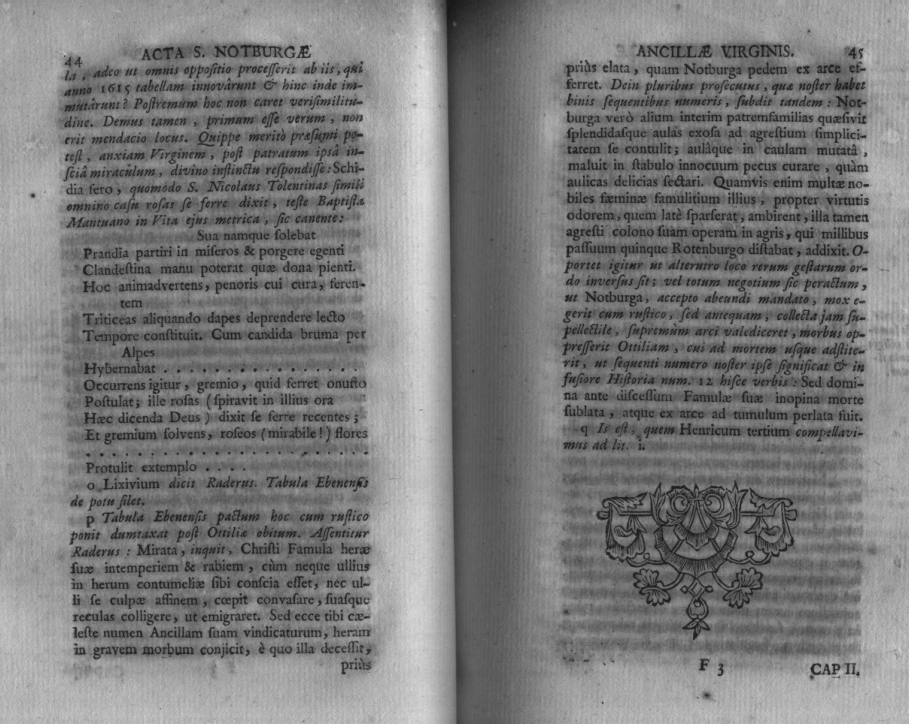 44 ACTA S. NOTBURGÆ
la, adeo ut omnis oppoſitio proceſſerit ab iis, qui
anno 1615 tabellam innovârunt & hinc inde im-
mutârunt? Poſtremum hoc non caret veriſimilitu-
dine. Demus tamen, primum eſſe verum, non
erit mendacio locus. Quippe meritò præſumi po-
teſt, anxiam Virginem, poſt patratum ipsâ in-
ſciâ miraculum, divino inſtinctu reſpondiſſe: Schi-
dia fero, quomodo S. Nicolaus Tolentinas ſimili
omnino caſu roſas ſe ferre dixit, teſte Baptiſta
Mantuano in Vita ejus metrica, ſic canente:
Sua namque ſolebat
Prandia partiri in miſeros & porgere egenti
Clandeſtina manu poterat quæ dona pienti.
Hoc animadvertens, penoris cui cura, feren-
tem
Triticeas aliquando dapes deprendere lecto
Tempore conſtituit. Cum candida bruma per
Alpes
Hybernabat . . . . . . . . . . . . . . . .
Occurrens igitur, gremio, quid ferret onuſto
Poſtulat; ille roſas (ſpiravit in illius ora
Hæc dicenda Deus) dixit ſe ferre recentes;
Et gremium ſolvens, roſeos (mirabile!) flores
. . . . . . . . . . . . . . . . . . . . . .
Protulit extemplo . . . .
o Lixivium dicit Raderus. Tabula Ebenenſis
de potu ſilet.
p Tabula Ebenenſis pactum hoc cum ruſtico
ponit dumtaxat poſt Ottiliæ obitum. Aſſentitur
Raderus: Mirata, inquit, Chriſti Famula heræ
ſuæ intemperiem & rabiem, cùm neque ullius
in herum contumeliæ ſibi conſcia eſſet, nec ul-
li ſe culpæ affinem, cœpit convaſare, ſuaſque
reculas colligere, ut emigraret. Sed ecce tibi cæ-
leſte numen Ancillam ſuam vindicaturum, heram
in gravem morbum conjicit, è quo illa deceſſit,
priùs
ANCILLÆ VIRGINIS. 45
priùs elata, quam Notburga pedem ex arce ef-
ferret. Dein pluribus proſecutus, quæ noſter habet
binis ſequentibus numeris, ſubdit tandem: Not-
burga verò alium interim patremfamilias quæſivit
ſplendidaſque aulas exoſa ad agreſtium ſimplici-
tatem ſe contulit; aulâque in caulam mutatâ,
maluit in ſtabulo innocuum pecus curare, quàm
aulicas delicias ſectari. Quamvis enim multæ no-
biles fæminæ famulitium illius, propter virtutis
odorem, quem latè ſparſerat, ambirent, illa tamen
agreſti colono ſuam operam in agris, qui millibus
paſſuum quinque Rotenburgo diſtabat, addixit. O-
portet igitur ut alterutro loco rerum geſtarum or-
do inverſus ſit; vel totum negotium ſic peractum,
ut Notburga, accepto abeundi mandato, mox e-
gerit cum ruſtico, ſed antequam, collecta jam ſu-
pellectile, ſupremùm arci valediceret, morbus op-
preſſerit Ottiliam, cui ad mortem uſque adſtite-
rit, ut ſequenti numero noſter ipſe ſignificat & in
fuſiore Hiſtoria num. 12 hiſce verbis: Sed domi-
na ante diſceſſum Famulæ ſuæ inopina morte
ſublata, atque ex arce ad tumulum perlata fuit.
q Is eſt, quem Henricum tertium compellavi-
mus ad lit. i.
F 3 CAP II.